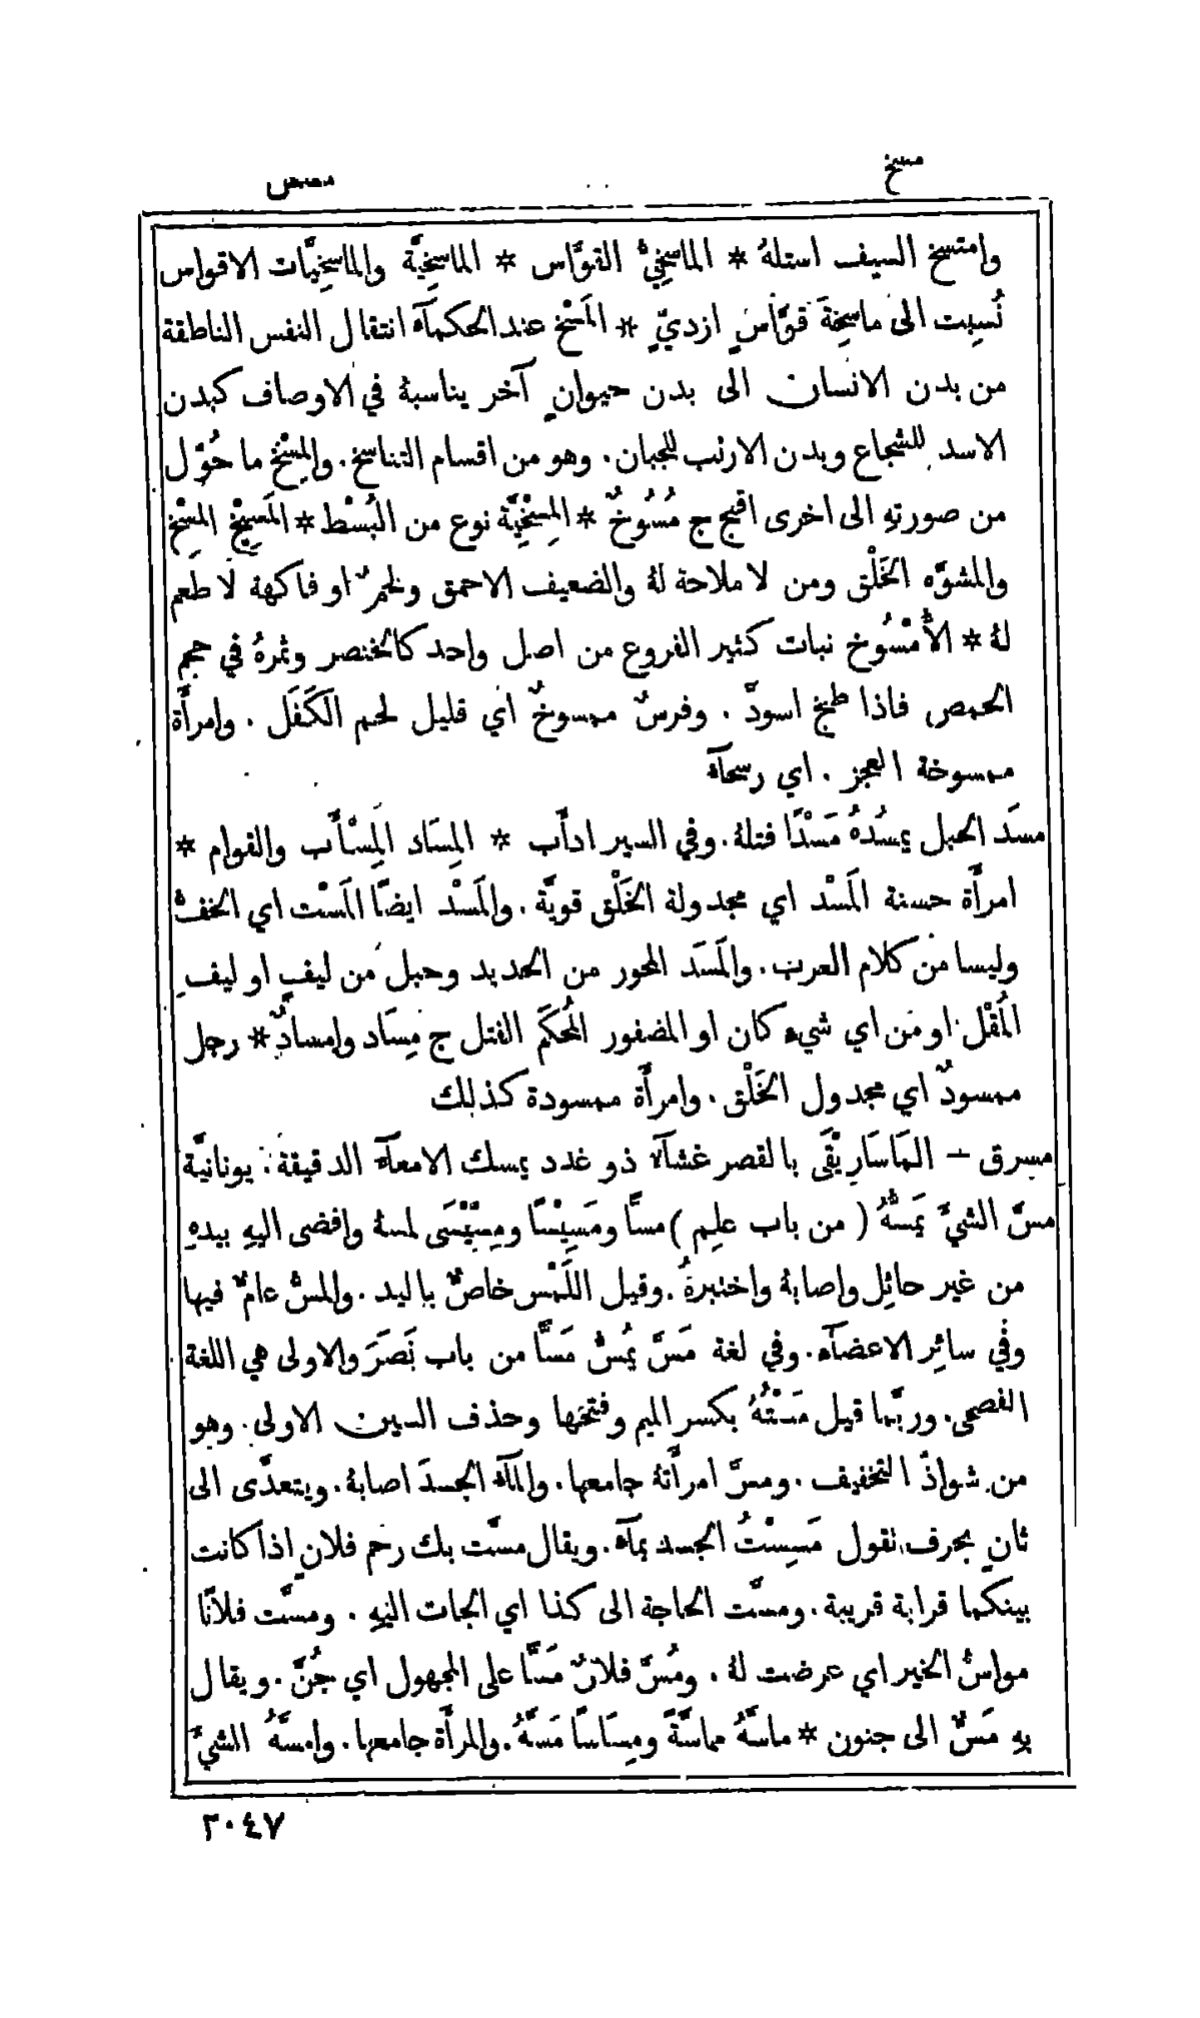 مسخ
مسس
وامتسخ السيف استلهُ * الماسِخيُّ القوَّاس * الماسِخِيَّة والماسِخِيَّات الاقواس
نُسِبت الى ماسِخةَ قوَّاسٍ ازديٍّ * المَسْخ عند الحكمآء انتقال النفس الناطقة
من بدن الانسان الى بدن حيوانٍ آخر يناسبهُ في الاوصاف كبدن
الاسد للشجاع وبدن الارنب للجبان. وهو من اقسام التناسخ. والمِسْخ ما حُوّل
من صورتهِ الى اخرى اقبح ج مُسُوخٌ * المِسْخِيَّة نوع من البُسْط * المَسِيْخ المِسْخ
والمشوَّه الخَلْق ومن لا ملاحة لهُ والضعيف الاحمق ولحمٌ او فاكهة لا طعم
لهُ * الأُمْسُوخ نبات كثير الفروع من اصل واحد كالخنصر وثمرهُ في حجم
الحمص فاذا طبخ اسودَّ . وفرسٌ ممسوخٌ اي قليل لحم الكَفَل . وامرأَة
ممسوخة العجز . اي رسحآء
مسَد الحبل يمسُدُهُ مَسْدًا فتلهُ. وفي السير ادأَب * المِسَاد المِسْأَب والقوام *
امرأَة حسنة المَسْد اي مجدولة الخَلْق قويَّة . والمَسْد ايضًا المَسْت اي الخفُّ
وليسا من كلام العرب. والمَسَد المحور من الحديد وحبل من ليفٍ او ليف
المُقْل او من اي شيء كان او المضفور المُحكَم الفتل ج مِسَاد وامسادٌ * رجل
ممسودٌ اي مجدول الخَلْق . وامرأَة ممسودة كذلك
مسرق – المَاسَارِيْقَى بالقصر غشآء ذو غدد يمسك الامعآء الدقيقة . يونانيَّة
مسَّ الشيَّ يَمسُّهُ ( من باب علِم ) مسًّا ومَسِيْسًا ومِسِّيْسَى لمسهُ وافضى اليهِ بيدهِ
من غير حائِل واصابهُ واختبرهُ . وقيل اللَّمْس خاصٌّ باليد . والمسُّ عامٌّ فيها
وفي سائِر الاعضآء. وفي لغة مَسَّ يُمسُّ مَسًّا من باب نَصَرَ والاولى هي اللغة
الفصحى. وربَّما قيل مَسْتُهُ بكسر الميم وفتحها وحذف السين الاولى. وهو
من شواذّ التخفيف . ومسَّ امرأَتهُ جامعها. والمآءُ الجسدَ اصابهُ . ويتعدَّى الى
ثانٍ بحرف تقول مَسِسْتُ الجسد بمآء. ويقال مسَّت بك رحم فلانٍ اذا كانت
بينكما قرابة قريبة . ومسَّت الحاجة الى كذا اي الجات اليهِ . ومسَّت فلانًا
مواسُّ الخير اي عرضت لهُ . ومُسَّ فلانٌ مَسًّا على المجهول اي جُنَّ . ويقال
بهِ مَسٌّ الى جنون * ماسَّهُ مماسَّةً ومِسَاسًا مَسَّهُ. والمرأَة جامعها. وامسَّهُ الشيَّ
٢٠٤٧